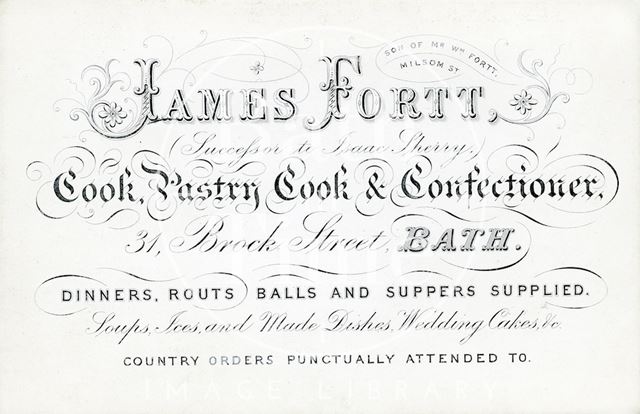 SON OF MR WM FORTT,
MILSOM ST
JAMES FORTT,
(Successor to Isaac Sherry,)
Cook, Pastry Cook & Confectioner,
31, Brock Street, BATH.
DINNERS, ROUTS BALLS AND SUPPERS SUPPLIED.
Soups, Ices, and Made Dishes, Wedding Cakes, &c.
COUNTRY ORDERS PUNCTUALLY ATTENDED TO.
IMAGE LIBRARY